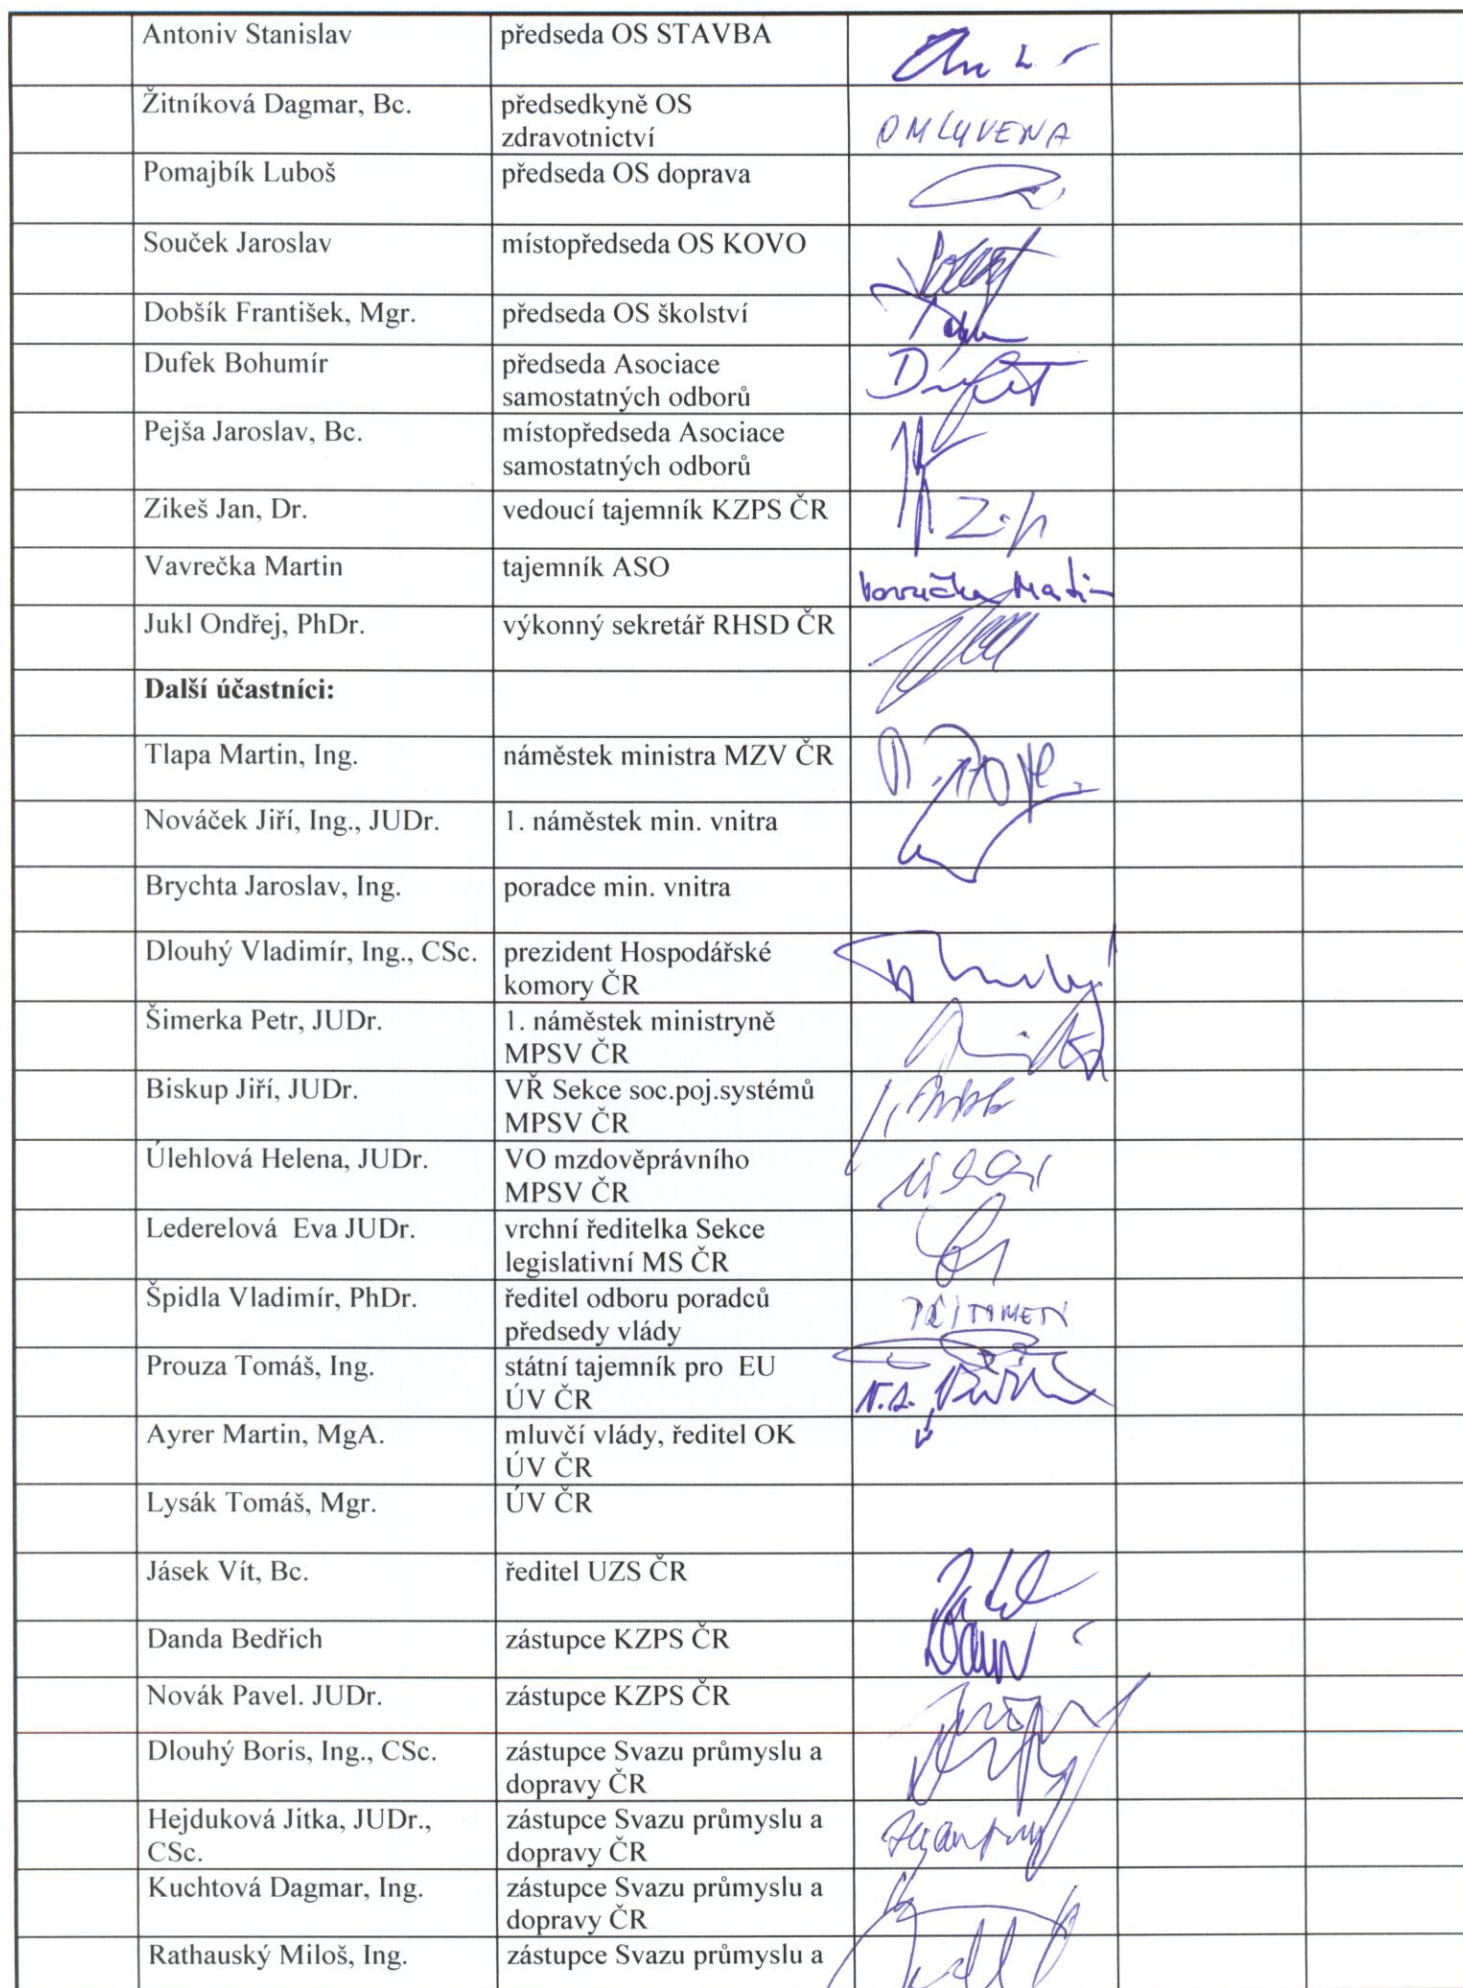 Antoniv Stanislav předseda OS STAVBA
Žitníková Dagmar, Bc. předsedkyně OS
zdravotnictví OMLUVENA
Pomajbík Luboš předseda OS doprava
Souček Jaroslav místopředseda OS KOVO
Dobšík František, Mgr. předseda OS školství
Dufek Bohumír předseda Asociace
samostatných odborů
Pejša Jaroslav, Bc. místopředseda Asociace
samostatných odborů
Zikeš Jan, Dr. vedoucí tajemník KZPS ČR
Vavrečka Martin tajemník ASO Vavrečka Martin
Jukl Ondřej, PhDr. výkonný sekretář RHSD ČR
Další účastníci:
Tlapa Martin, Ing. náměstek ministra MZV ČR
Nováček Jiří, Ing., JUDr. 1. náměstek min. vnitra
Brychta Jaroslav, Ing. poradce min. vnitra
Dlouhý Vladimír, Ing., CSc. prezident Hospodářské
komory ČR
Šimerka Petr, JUDr. 1. náměstek ministryně
MPSV ČR
Biskup Jiří, JUDr. VŘ Sekce soc.poj.systémů
MPSV ČR
Úlehlová Helena, JUDr. VO mzdověprávního
MPSV ČR
Lederelová Eva JUDr. vrchní ředitelka Sekce
legislativní MS ČR
Špidla Vladimír, PhDr. ředitel odboru poradců
předsedy vlády
Prouza Tomáš, Ing. státní tajemník pro EU
ÚV ČR
Ayrer Martin, MgA. mluvčí vlády, ředitel OK
ÚV ČR
Lysák Tomáš, Mgr. ÚV ČR
Jásek Vít, Bc. ředitel UZS ČR
Danda Bedřich zástupce KZPS ČR
Novák Pavel. JUDr. zástupce KZPS ČR
Dlouhý Boris, Ing., CSc. zástupce Svazu průmyslu a
dopravy ČR
Hejduková Jitka, JUDr., zástupce Svazu průmyslu a
CSc. dopravy ČR
Kuchtová Dagmar, Ing. zástupce Svazu průmyslu a
dopravy ČR
Rathauský Miloš, Ing. zástupce Svazu průmyslu a